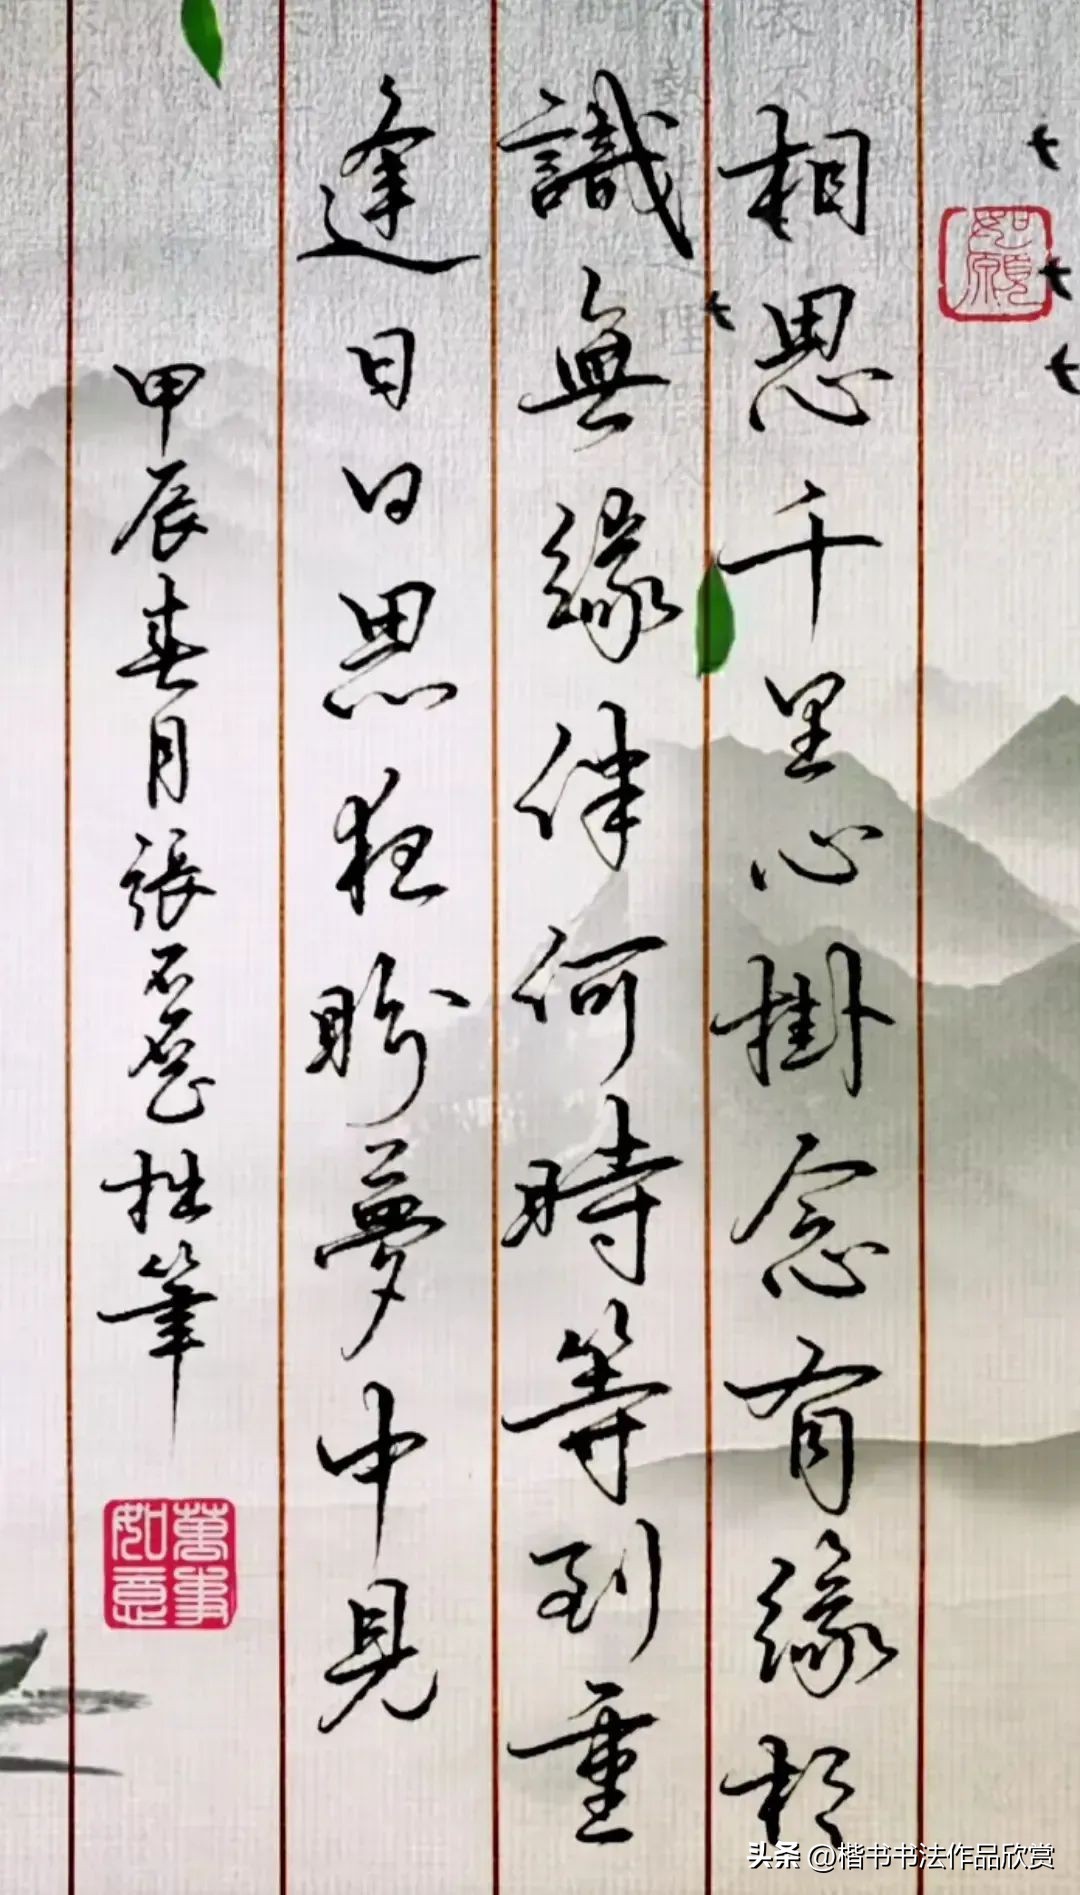 如願
相思千里心掛念有緣相
識無緣伴何時等到重
逢日日思狂盼夢中見
甲辰春月張拙筆
萬事
如意
头条 @楷书书法作品欣赏